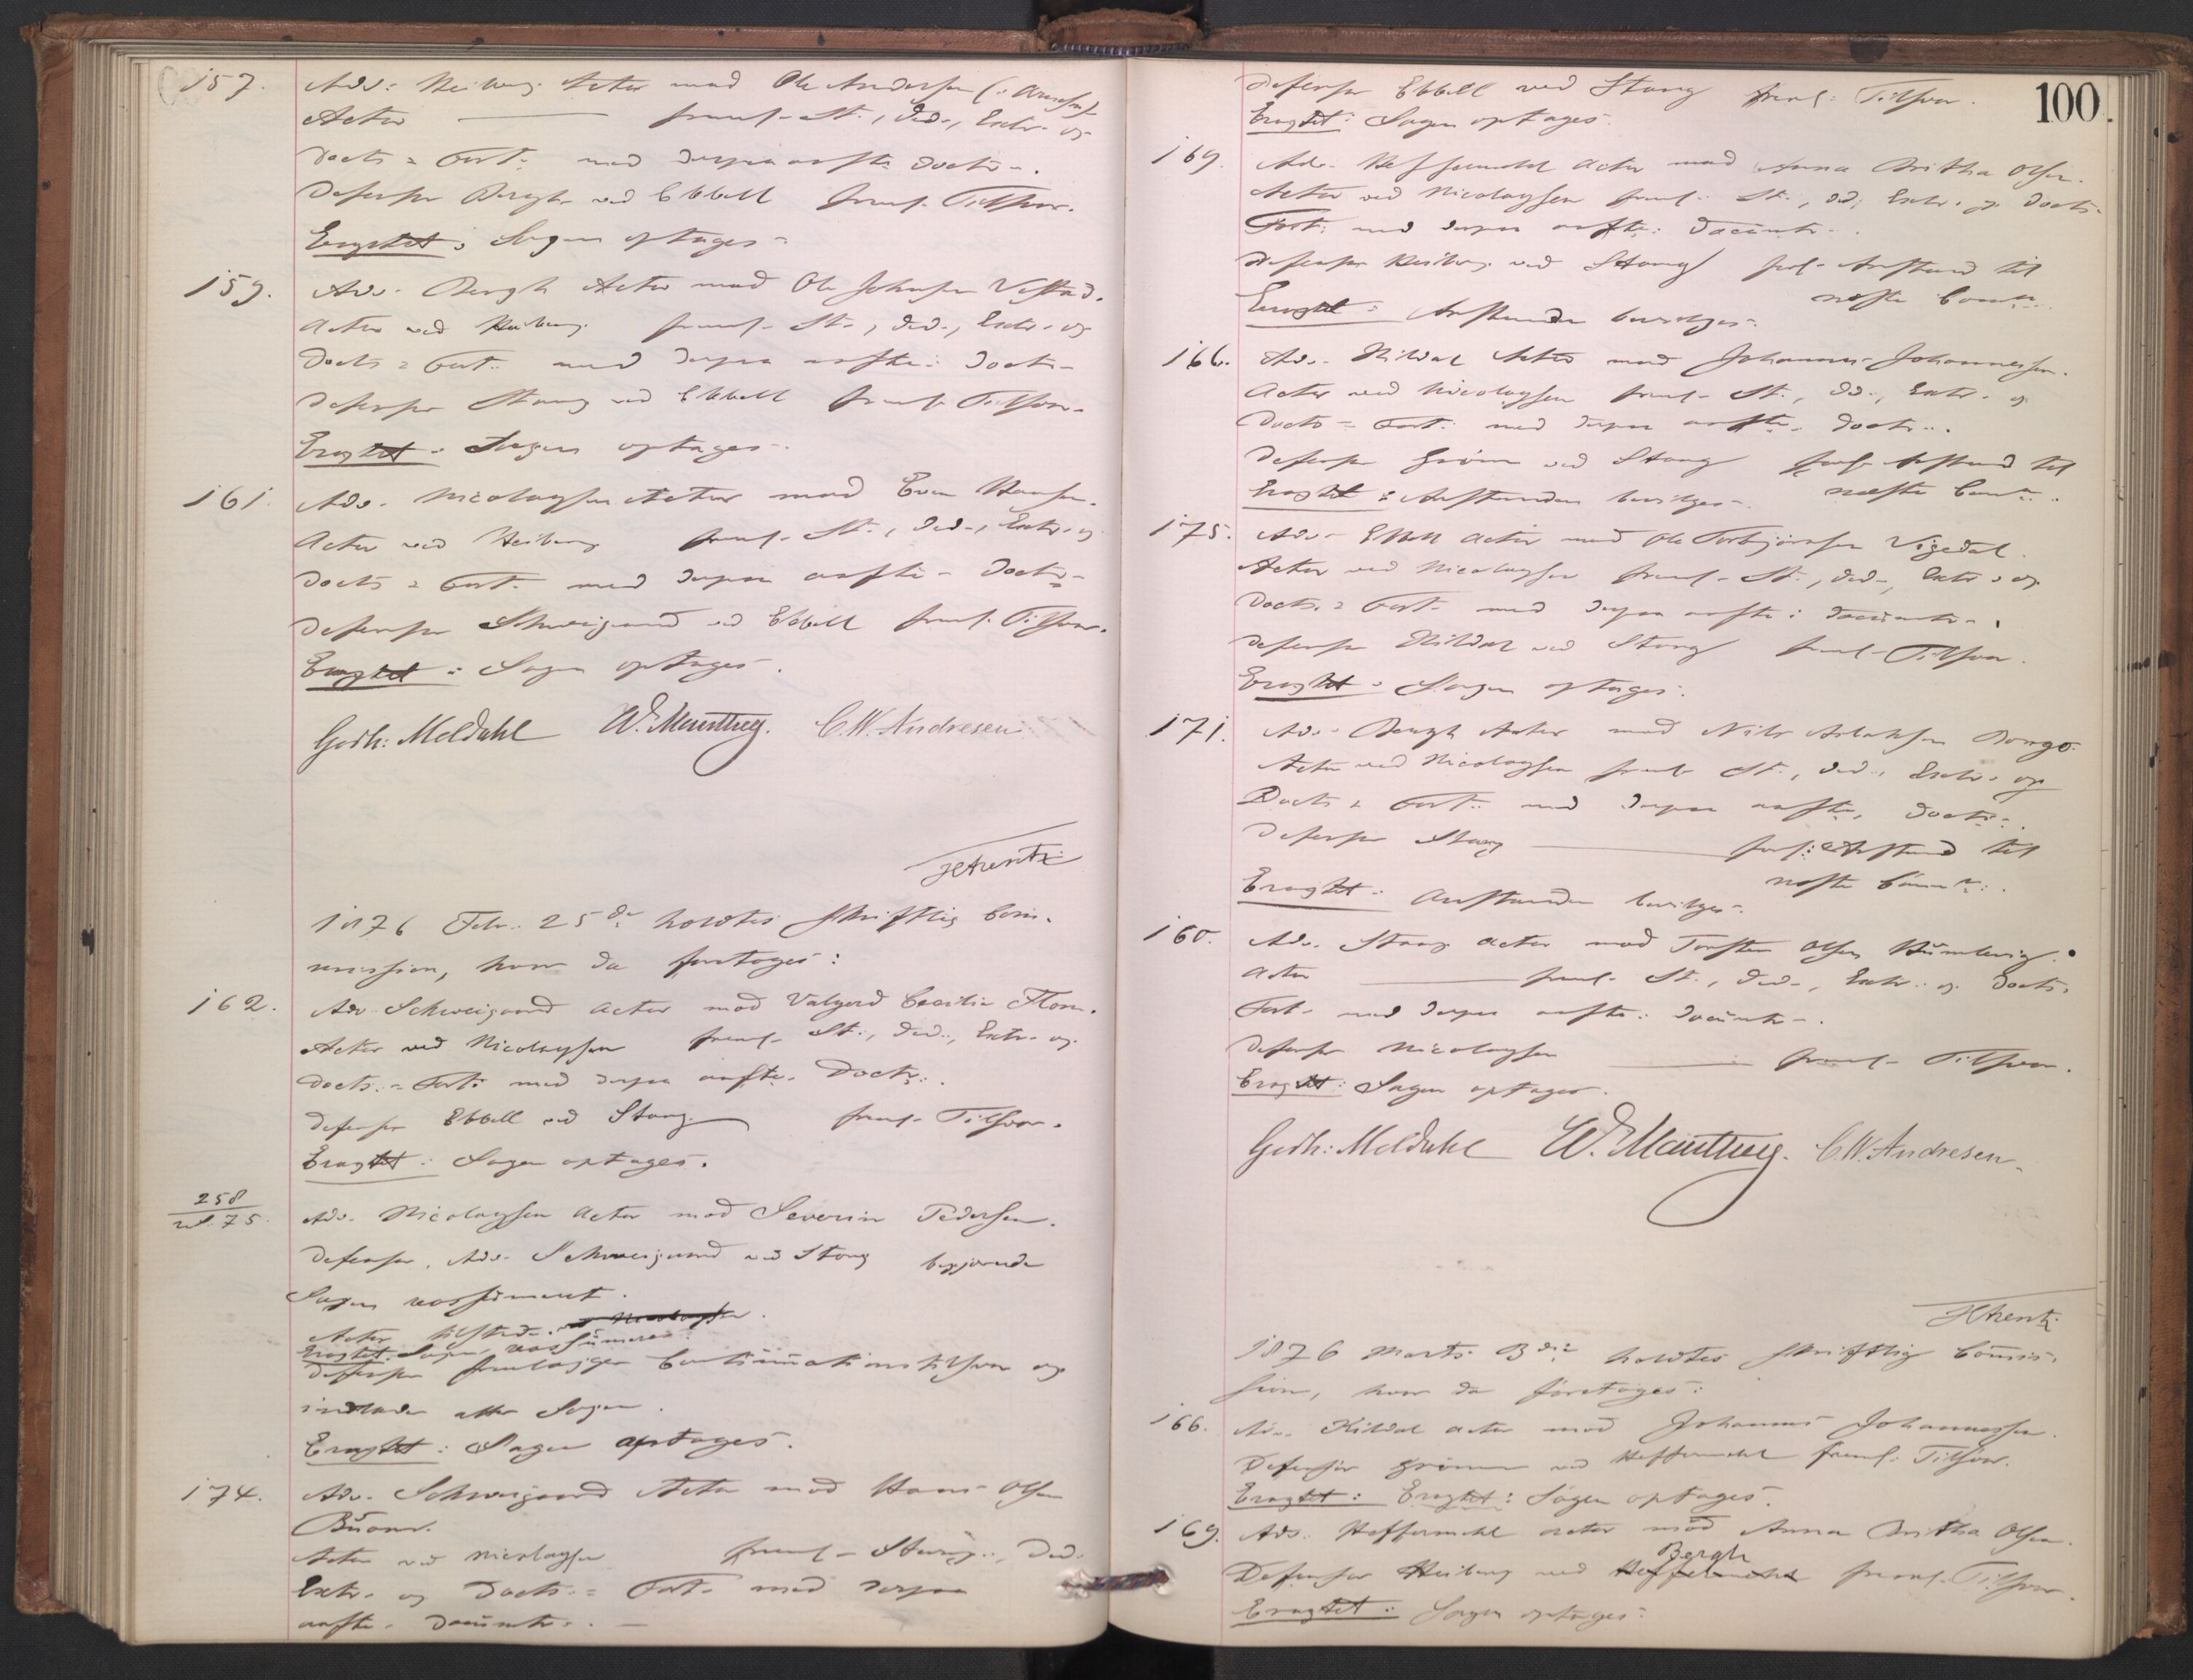 157. Adv. Heiberg Actor mod Ole Andersen (: Arnesen)
Actor — freml. St., Ded., Extr. og
Docts = Fort. med derpaa anførte Doctr.
Defensor Bergh ved Ebbell freml. Tilsvar.
Eragtet: Sagen optages.
159. Adv. Bergh Actor mod Ole Johnsen Vestad.
Actor ved Heiberg freml. St., Ded., Extr. og
Docts = Fort. med derpaa anførte Doctr.
Defensor Stang ved Ebbell freml. Tilsvar.
Eragtet: Sagen optages.
161. Adv. Nicolaysen Actor mod Even Hansen.
Actor ved Heiberg freml. St., Ded., Extr. og
Docts = Fort. med derpaa anførte Doctr.
Defensor Schweigaard ved Ebbell freml. Tilsvar.
Eragtet: Sagen optages.
Godh: Meldahl W. Manthey. C.W. Andresen
1876 Febr. 25de holdtes skriftlig Com-
mission, hvor da foretoges:
162. Adv. Schweigaard Actor mod Valgerd Cecilie Flom.
Actor ved Nicolaysen freml. St., Ded., Extr. og
Docts. = Fort. med derpaa anførte Doctr.
Defensor Ebbell ved Stang freml. Tilsvar.
Eragtet: Sagen optages.
258/75. Adv. Nicolaysen Actor mod Severin Pedersen.
Defensor, Adv. Schweigaard ved Stang begjærede
Sagen reassumeret.
Actor tilstede. ved Nicolaysen.
Eragtet: Sagen reassumeres.
Defensor fremlægger Continuationstilsvar og
indlader atter Sagen.
Eragtet: Sagen optages.
174. Adv. Schweigaard Actor mod Hans Olsen
Actor ved Nicolaysen freml. Stevn., Ded.
Extr. og Docts. = Fort. med derpaa
anførte Documtr.
100.
Defensor Ebbell ved Stang freml. Tilsvar.
Eragtet: Sagen optages.
169. Adv. Heffermehl Actor mod Anna Britha Olsen.
Actor ved Nicolaysen freml. St., Ded., Extr. og Docts.
Fort. med derpaa anførte Documtr.
Defensor Heiberg ved Stang forl. Anstand til
næste Comm.
Eragtet: Anstanden bevilges.
166. Adv. Kildal Actor mod Johannes Johannessen.
Actor ved Nicolaysen freml. St., Ded., Extr. og
Docts = Fort. med derpaa anførte Doctr.
Defensor Grönn ved Stang forl. Anstand til
næste Comm.
Eragtet: Anstanden bevilges.
175. Adv. Ebbell Actor mod Ole Torbjörnsen Vigedal.
Actor ved Nicolaysen freml. St., Ded., Extr. og
Docts. = Fort. med derpaa anførte Documtr.
Defensor Kildal ved Stang freml. Tilsvar.
Eragtet: Sagen optages.
171. Adv. Bergh Actor mod Nils Aslaksen Bongo.
Actor ved Nicolaysen freml. St., Ded., Extr. og
Docts = Fort. med derpaa anførte Doctr.
Defensor Stang — forl. Anstand til
næste Comm.
Eragtet: Anstanden bevilges.
160. Adv. Stang Actor mod Torsten Olsen Humlevig.
Actor — freml. St., Ded., Extr. og Docts.
Fort. med derpaa anførte Documtr.
Defensor Nicolaysen — freml. Tilsvar.
Eragtet: Sagen optages.
Godh: Meldahl W. Manthey. C.W. Andresen
1876 Marts 3die holdtes skriftlig Commis-
sion, hvor da foretoges:
166. Adv. Kildal Actor mod Johannes Johannessen.
Defensor Grönn ved Heffermehl freml. Tilsvar.
Eragtet: Eragtet: Sagen optages.
169. Adv. Heffermehl Actor mod Anna Britha Olsen.
Defensor Heiberg ved Heffermehl Bergh freml. Tilsvar.
Eragtet: Sagen optages.